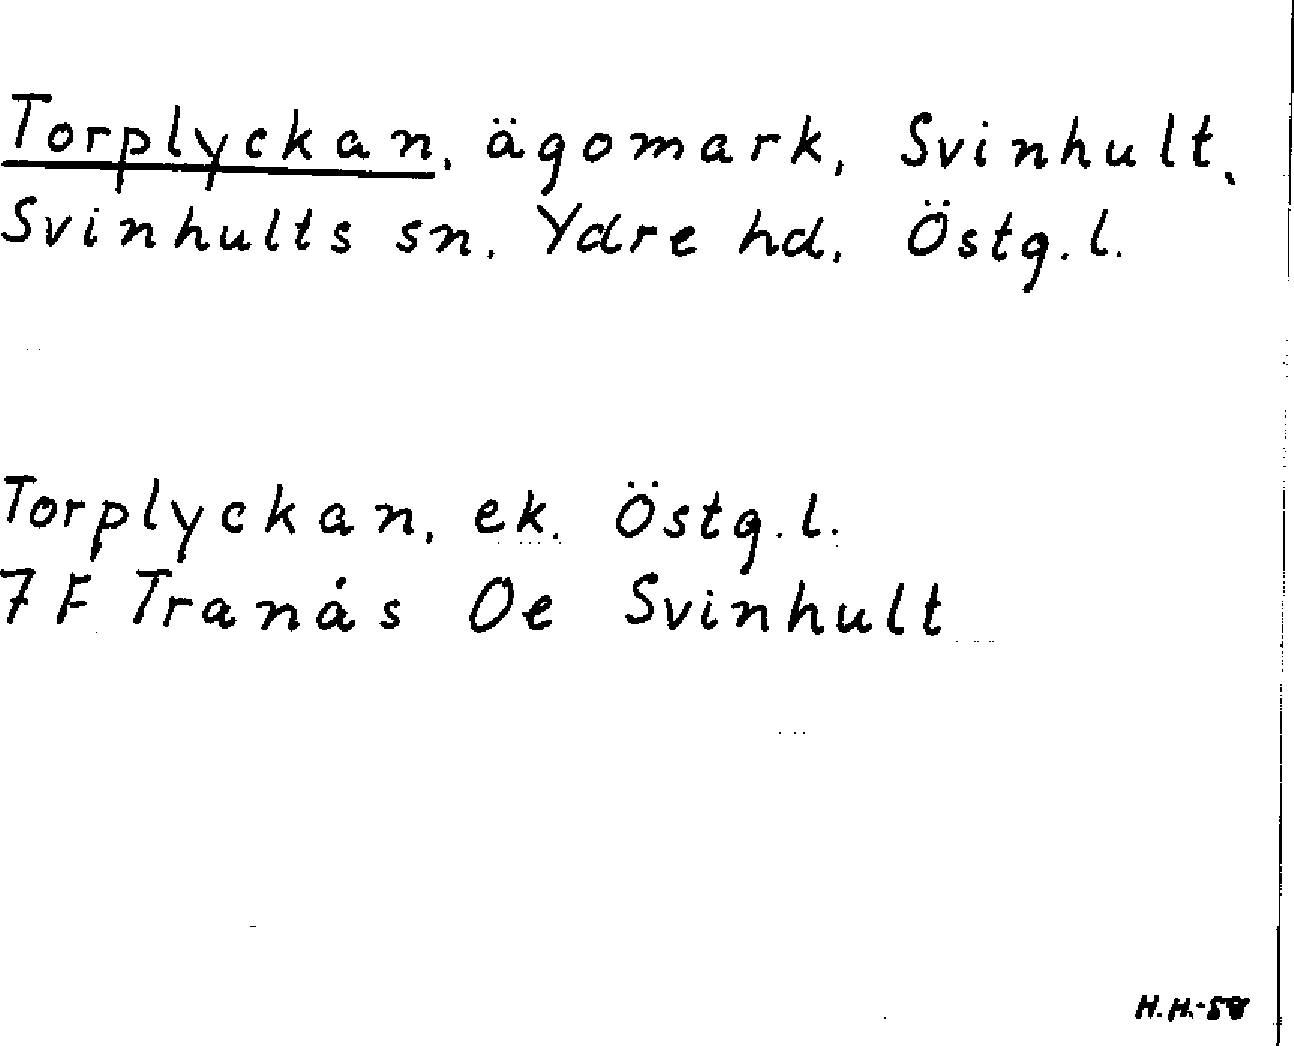 Torplyckan, ägomark, Svinhult,
Svinhults sn, Ydre hd, Östg.l.
Torplyckan, ek. Östg.l.
7 F Tranås 0e Svinhult
H.H.-58